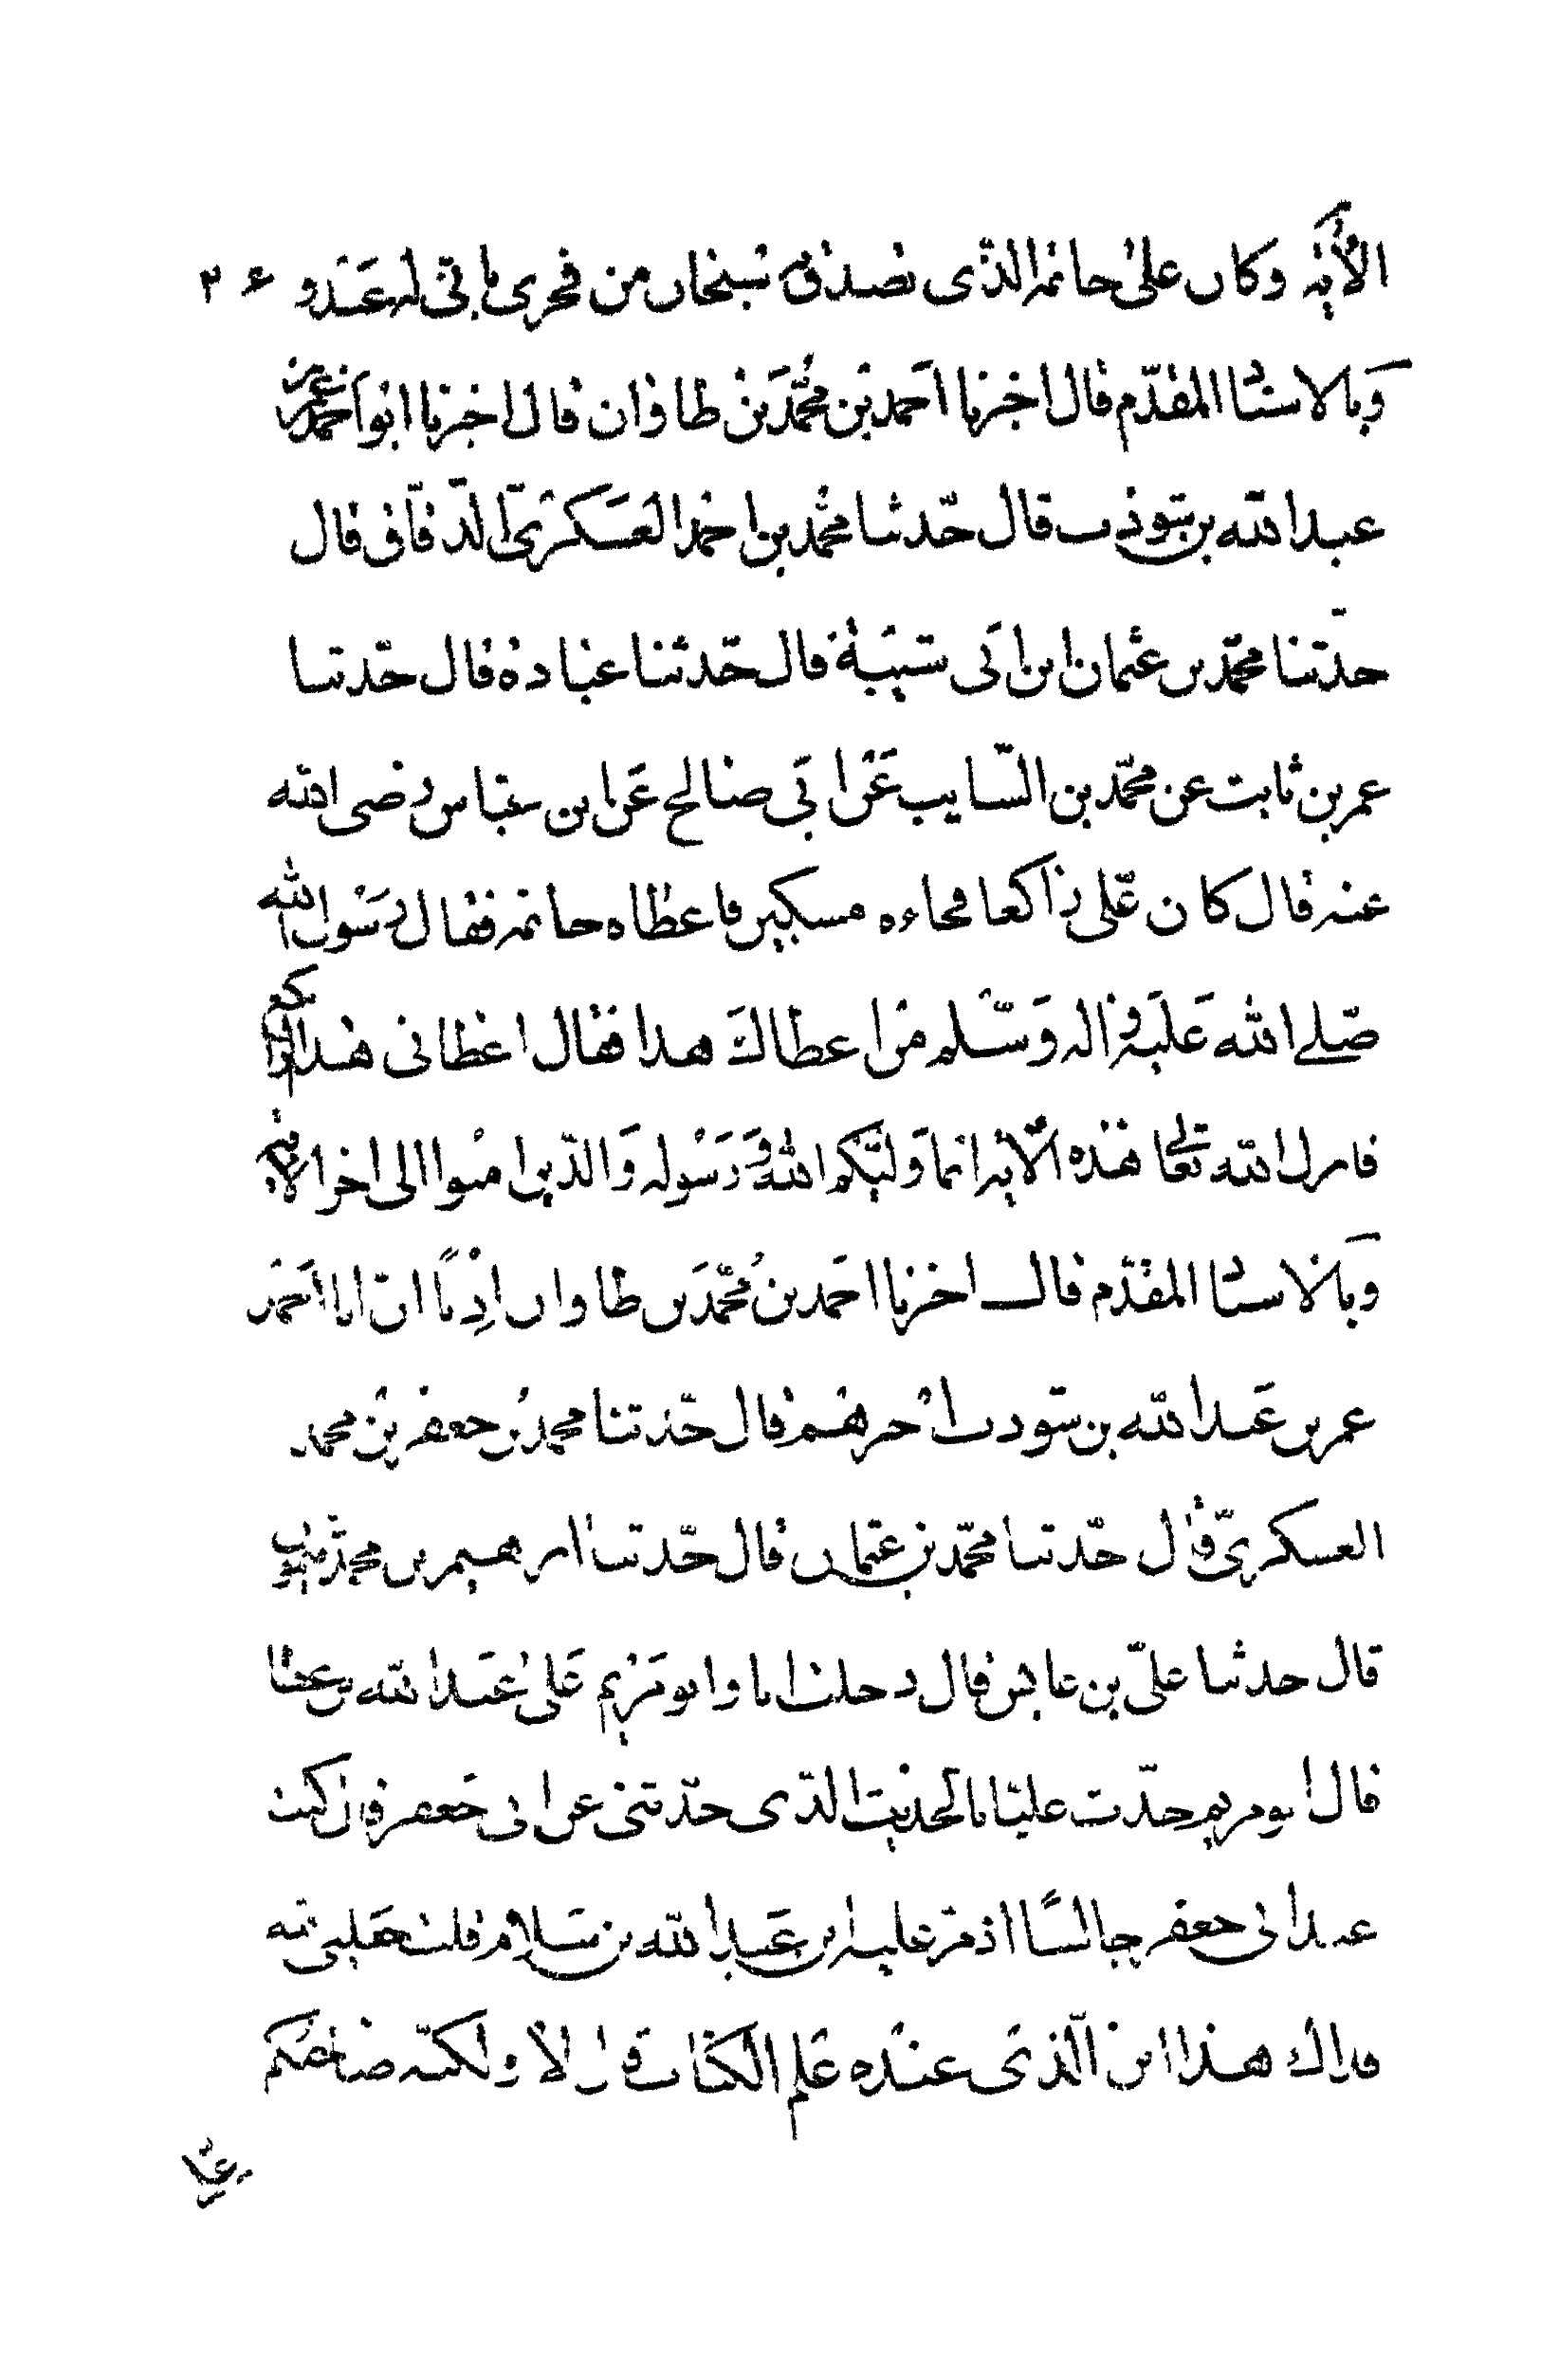 الآية وكان على خاتمه الذي تصدق به سبحان من فخري باني له عبد و ٢٤
وبالاسناد المقدم قال اخبرنا احمد بن محمد بن طاوان قال اخبرنا ابو احمد عمر بن
عبد الله بن شوذب قال حدثنا محمد بن احمد العسكري الدقاق قال
حدثنا محمد بن عثمان ابن ابى شيبة قال حدثنا عبادة قال حدثنا
عمر بن ثابت عن محمد بن السايب عن ابي صالح عن ابن عباس رضى الله
عنه قال كان علي راكعا فجاءه مسكين فاعطاه خاتمه فقال رسول الله
صلى الله عليه واله وسلم من اعطاك هذا فقال اعطانى هذا الراكع
فانزل الله تعالى هذه الآية انما وليكم الله ورسوله والذين امنوا الى اخر الآية
وبالاسناد المقدم قال اخبرنا احمد بن محمد بن طاوان اذنا ان ابا احمد
عمر بن عبد الله بن شوذب اخبرهم قال حدثنا محمد بن جعفر بن محمد
العسكري قال حدثنا محمد بن عثمان قال حدثنا ابرهيم بن محمد بن ميمون
قال حدثنا علي بن عابس قال دخلت انا وابو مريم على عبد الله بن عطا
قال ابو مريم حدث عليا بالحديث الذى حدثتنى عن ابى جعفر قال كنت
عند ابى جعفر جالسا اذ مر عليه ابن عبد الله بن سلام قلت جعلنى الله
فداك هذا ابن الذي عنده علم الكتاب قال لا ولكنه صاحبكم
علي